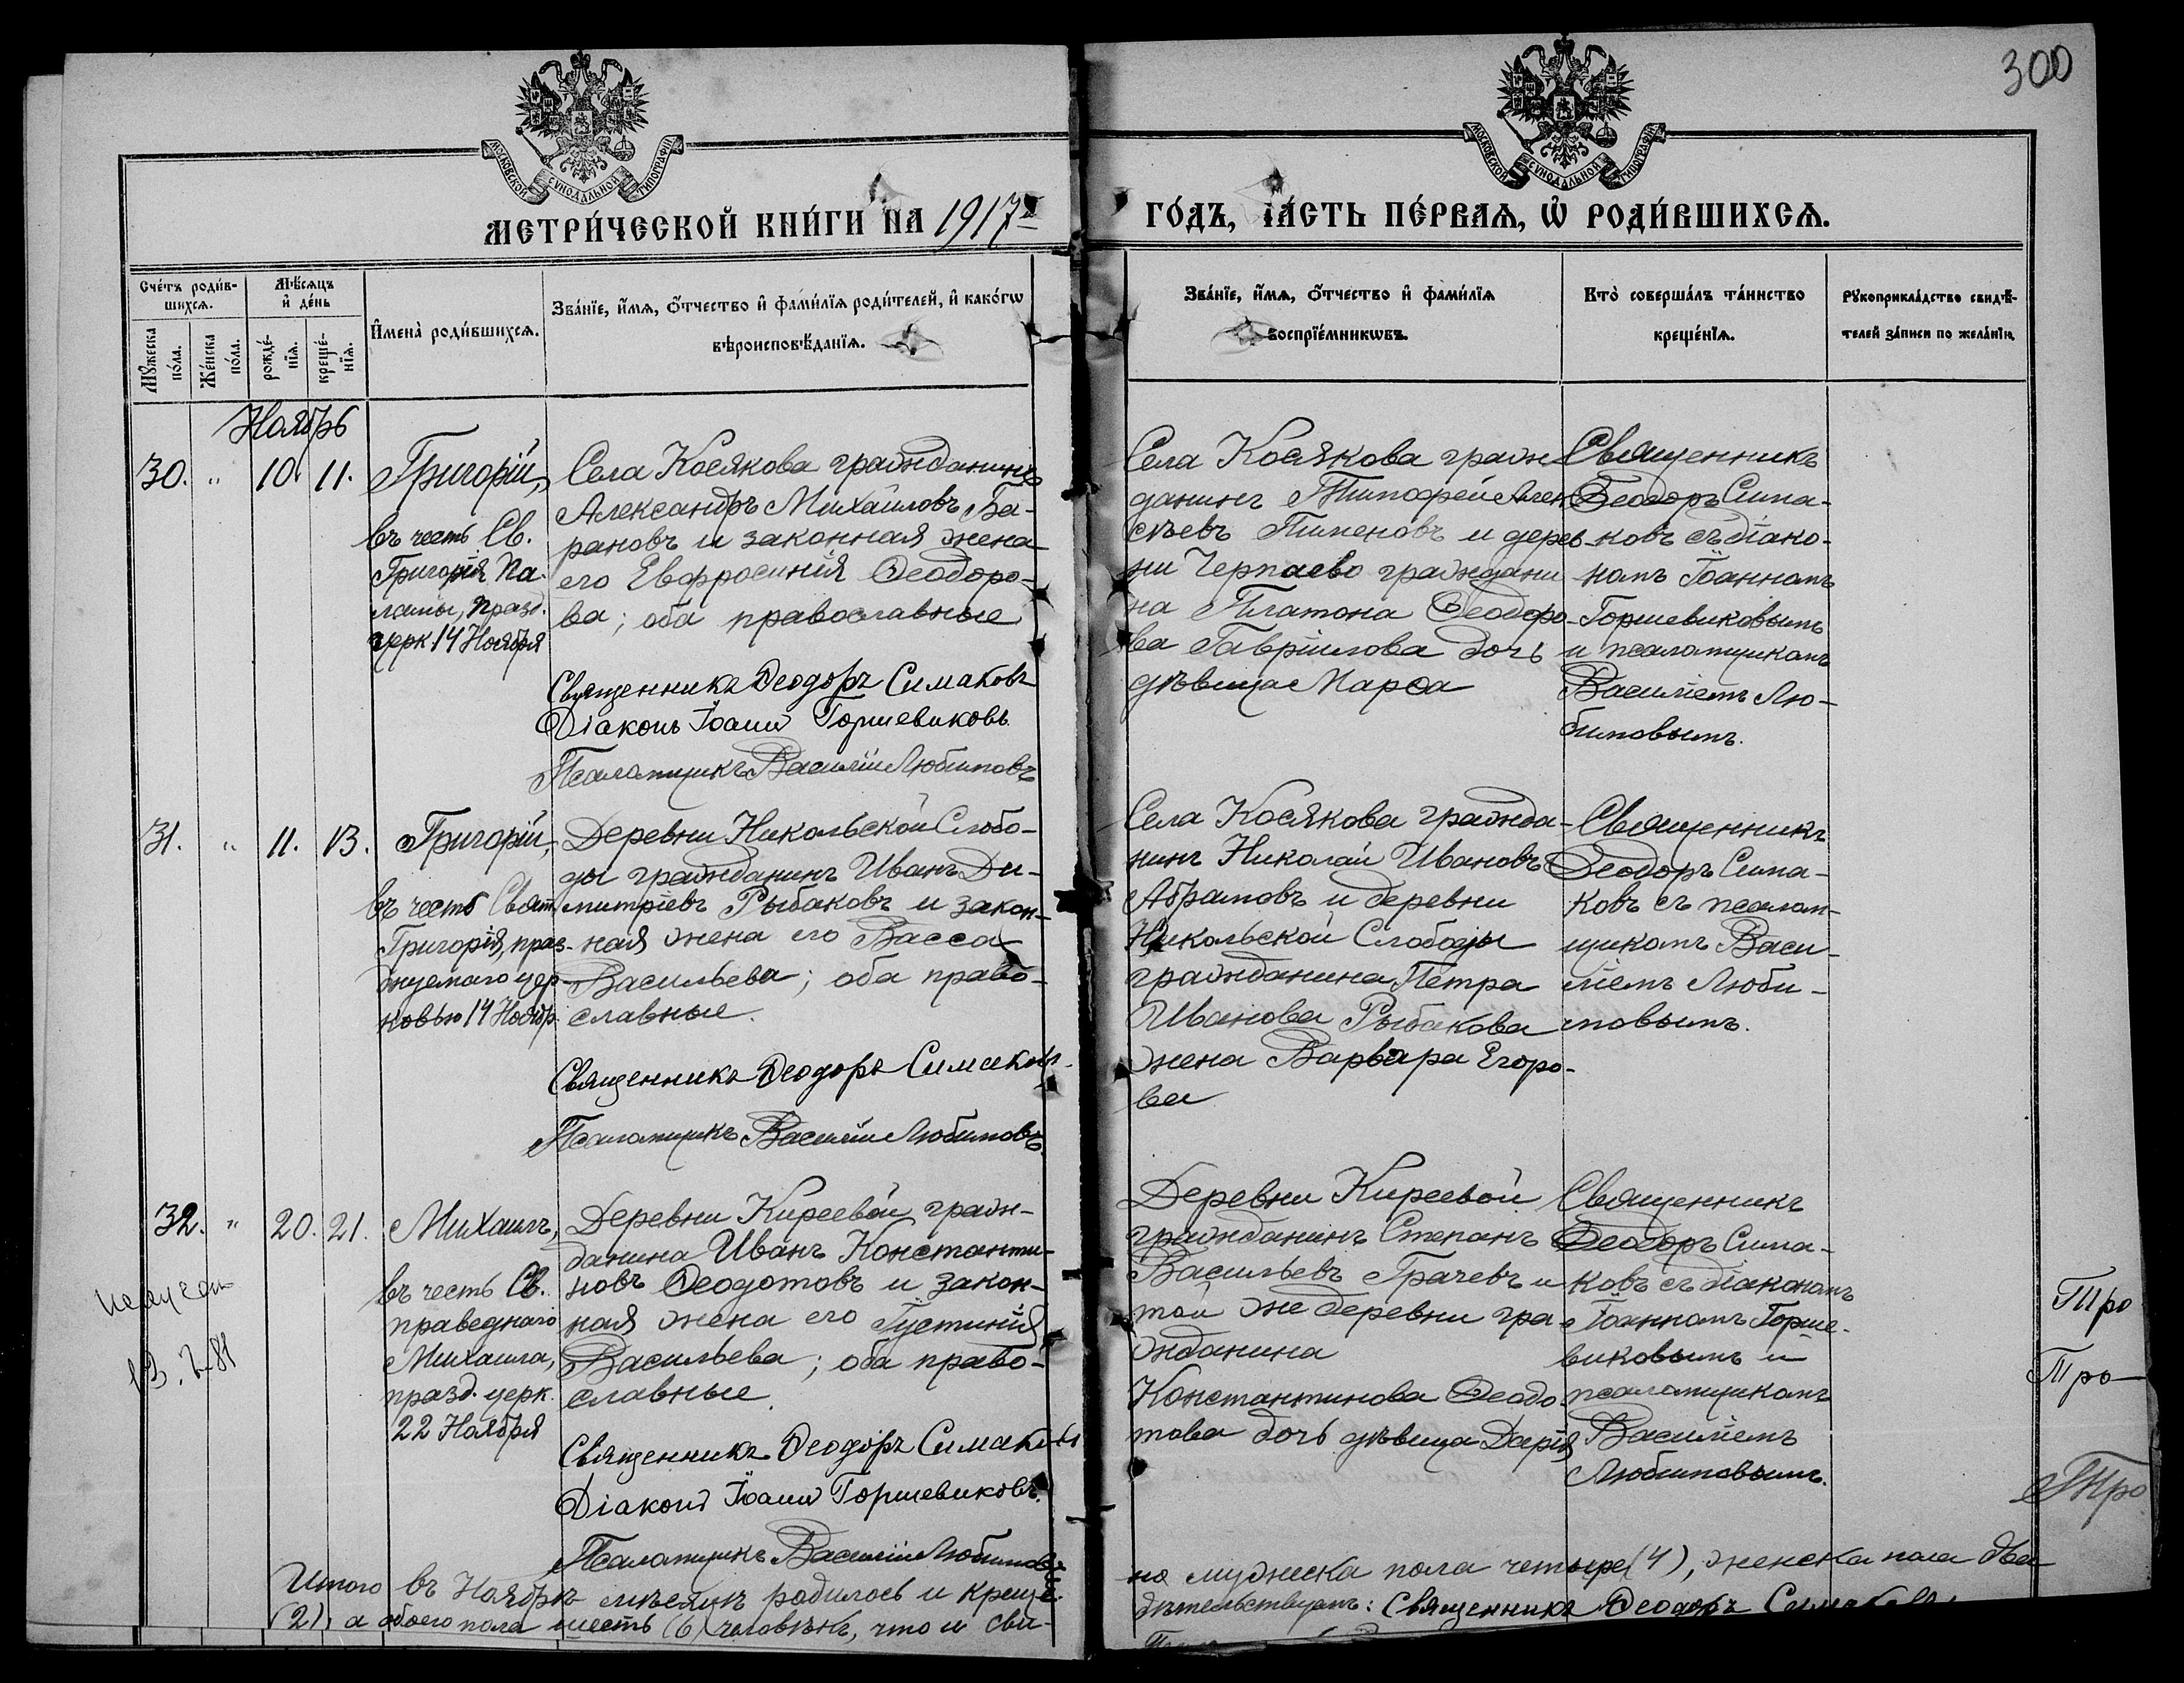 300
МОСКОВСКОЙ СУНОДАЛЬНОЙ ТИПОГРАФІИ
МОСКОВСКОЙ СУНОДАЛЬНОЙ ТИПОГРАФІИ
МЕТРИ́ЧЕСКОЙ КНИ́ГИ НА 1917й
ГО́ДЪ, ЧА́СТЬ ПЕ́РВАѦ, Ѡ҆ РОДИ́ВШИХСѦ.
Сче́тъ роди́в-
шихсѧ.
Мꙋжеска
по́ла.
Же́нска
по́ла.
Мѣ́сѧцъ
и҆ де́нь
рожде́-
нїѧ.
креще́-
нїѧ.
И҆мена̀ роди́вшихсѧ.
Зва́нїе, и҆́мѧ, ѻ҆́тчество и҆ фами́лїѧ роди́телей, и҆ како́гѡ
вѣроисповѣ́данїѧ.
Зва́нїе, и҆́мѧ, ѻ҆́тчество и҆ фами́лїѧ
воспрїе́мникѡвъ.
Кто̀ соверша́лъ та́инство
креще́нїѧ.
Рꙋкоприкла́дство свидѣ́-
телей за́писи по жела́нїю.
Ноябрь
30. " 10. 11.
Григорій,
въ честь Св.
Григорія Па-
ламы, празд.
церк 14 Ноября
Села Косякова гражданинъ
Александръ Михаиловъ Ба-
рановъ и законная жена
его Евфросинія Ѳеодоро-
ва; оба православные
Священникъ Ѳеодоръ Симаковъ
Діаконъ Іоаннъ Горшевиковъ
Псаломщикъ Василій Любимовъ
Села Косякова граж-
данинъ Тимофей Алек-
сѣевъ Пименовъ и дерев-
ни Черпаево граждани
на Платона Ѳеодоро-
ва Гавріилова дочь
дѣвица Марѳа
Священникъ
Ѳеодоръ Сима-
ковъ съ діако-
номъ Іоанномъ
Горшевиковымъ
и псаломщикомъ
Василіемъ Лю-
бимовымъ.
31. " 11. 13.
Григорій,
въ честь Свят.
Григорія, праз-
днуемаго цер-
ковью 14 Ноябр.
Деревни Никольской Слобо-
ды гражданинъ Иванъ Ди-
митріевъ Рыбаковъ и закон-
ная жена его Васса
Васильева; оба право-
славные.
Священникъ Ѳеодоръ Симаковъ.
Псаломщикъ Василій Любимовъ.
Села Косякова гражда-
нинъ Николай Ивановъ
Абрамовъ и деревни
Никольской Слободы
гражданина Петра
Иванова Рыбакова
жена Варвара Егоро-
ва
Священникъ
Ѳеодоръ Сима-
ковъ съ псалом-
щикомъ Васи-
ліемъ Люби-
мовымъ.
32. " 20. 21.
Михаилъ,
въ честь Св.
праведнаго
Михаила,
празд. церк.
22 Ноября
Деревни Киреевой граж-
данина Иванъ Константи-
новъ Ѳеодотовъ и закон-
ная жена его Густинія
Васильева; оба право-
славные.
Священникъ Ѳеодоръ Симаковъ
Діаконъ Іоаннъ Горшевиковъ.
Псаломщикъ Василій Любимовъ
Деревни Киреевой
гражданинъ Степанъ
Васильевъ Грачевъ и
той же деревни гра-
жданина
Константинова Ѳеодо-
това дочь дѣвица Дарія
Священникъ
Ѳеодоръ Сима-
ковъ съ діакономъ
Іоанномъ Горше-
виковымъ и
псаломщикомъ
Василіемъ
Любимовымъ.
Про
Про
Про
Итого въ Ноябрѣ мѣсяцѣ родилось и креще-
но мужеска пола четыре (4), женска пола два
(2), а обоего пола шесть (6) человѣкъ, что и сви-
дѣтельствуемъ: Священникъ Ѳеодоръ Симаковъ